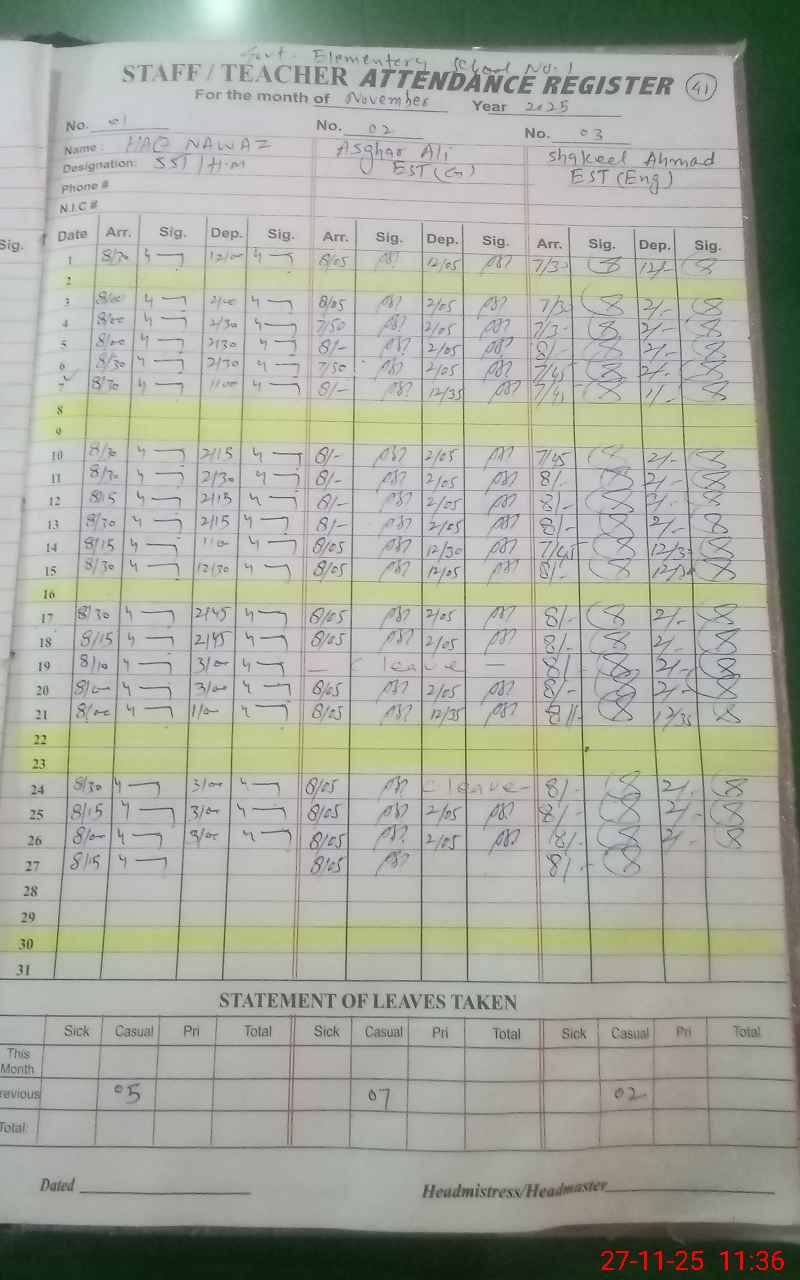 Govt. Elementery School No. 1
STAFF / TEACHER ATTENDANCE REGISTER 41
For the month of November Year 2025
No. 01 No. 02 No. 03
Name : HAQ NAWAZ Asghar Ali Shakeel Ahmad
Designation: SST/H.M EST(G) EST(Eng)
Phone #
N.I.C #
Sig. Date Arr. Sig. Dep. Sig. Arr. Sig. Dep. Sig. Arr. Sig. Dep. Sig.
1 8/30 12/00 8/05 12/05 7/30 12/-
2
3 8/00 2/00 8/05 2/05 7/30 2/-
4 8/00 2/30 7/50 2/05 7/3- 2/-
5 8/00 2/30 8/- 2/05 8/- 2/-
6 8/30 2/30 7/50 2/05 7/45 2/-
7 8/30 1/00 8/- 12/35 7/45 1/-
8
9
10 8/30 2/15 8/- 2/05 7/45 2/-
11 8/30 2/30 8/- 2/05 8/- 2/-
12 8/15 2/15 8/- 2/05 8/- 2/-
13 8/30 2/15 8/- 2/05 8/- 2/-
14 8/15 8/05 12/30 7/45 12/30
15 8/30 12/30 8/05 12/05 8/- 12/30
16
17 8/30 2/45 8/05 2/05 8/- 2/-
18 8/15 2/45 8/05 2/05 8/- 2/-
19 8/10 3/00 — C leave — 8/- 2/-
20 8/00 3/00 8/05 2/05 8/- 2/-
21 8/00 1/00 8/05 12/35 8/- 12/35
22
23
24 8/30 3/00 8/05 C leave - 8/- 2/-
25 8/15 3/00 8/05 2/05 8/- 2/-
26 8/00 3/00 8/05 2/05 8/- 2/-
27 8/15 8/05 8/-
28
29
30
31
STATEMENT OF LEAVES TAKEN
Sick Casual Pri Total Sick Casual Pri Total Sick Casual Pri Total
This
Month
revious 05 07 02
Total:
Dated Headmistress/Headmaster
27-11-25 11:36